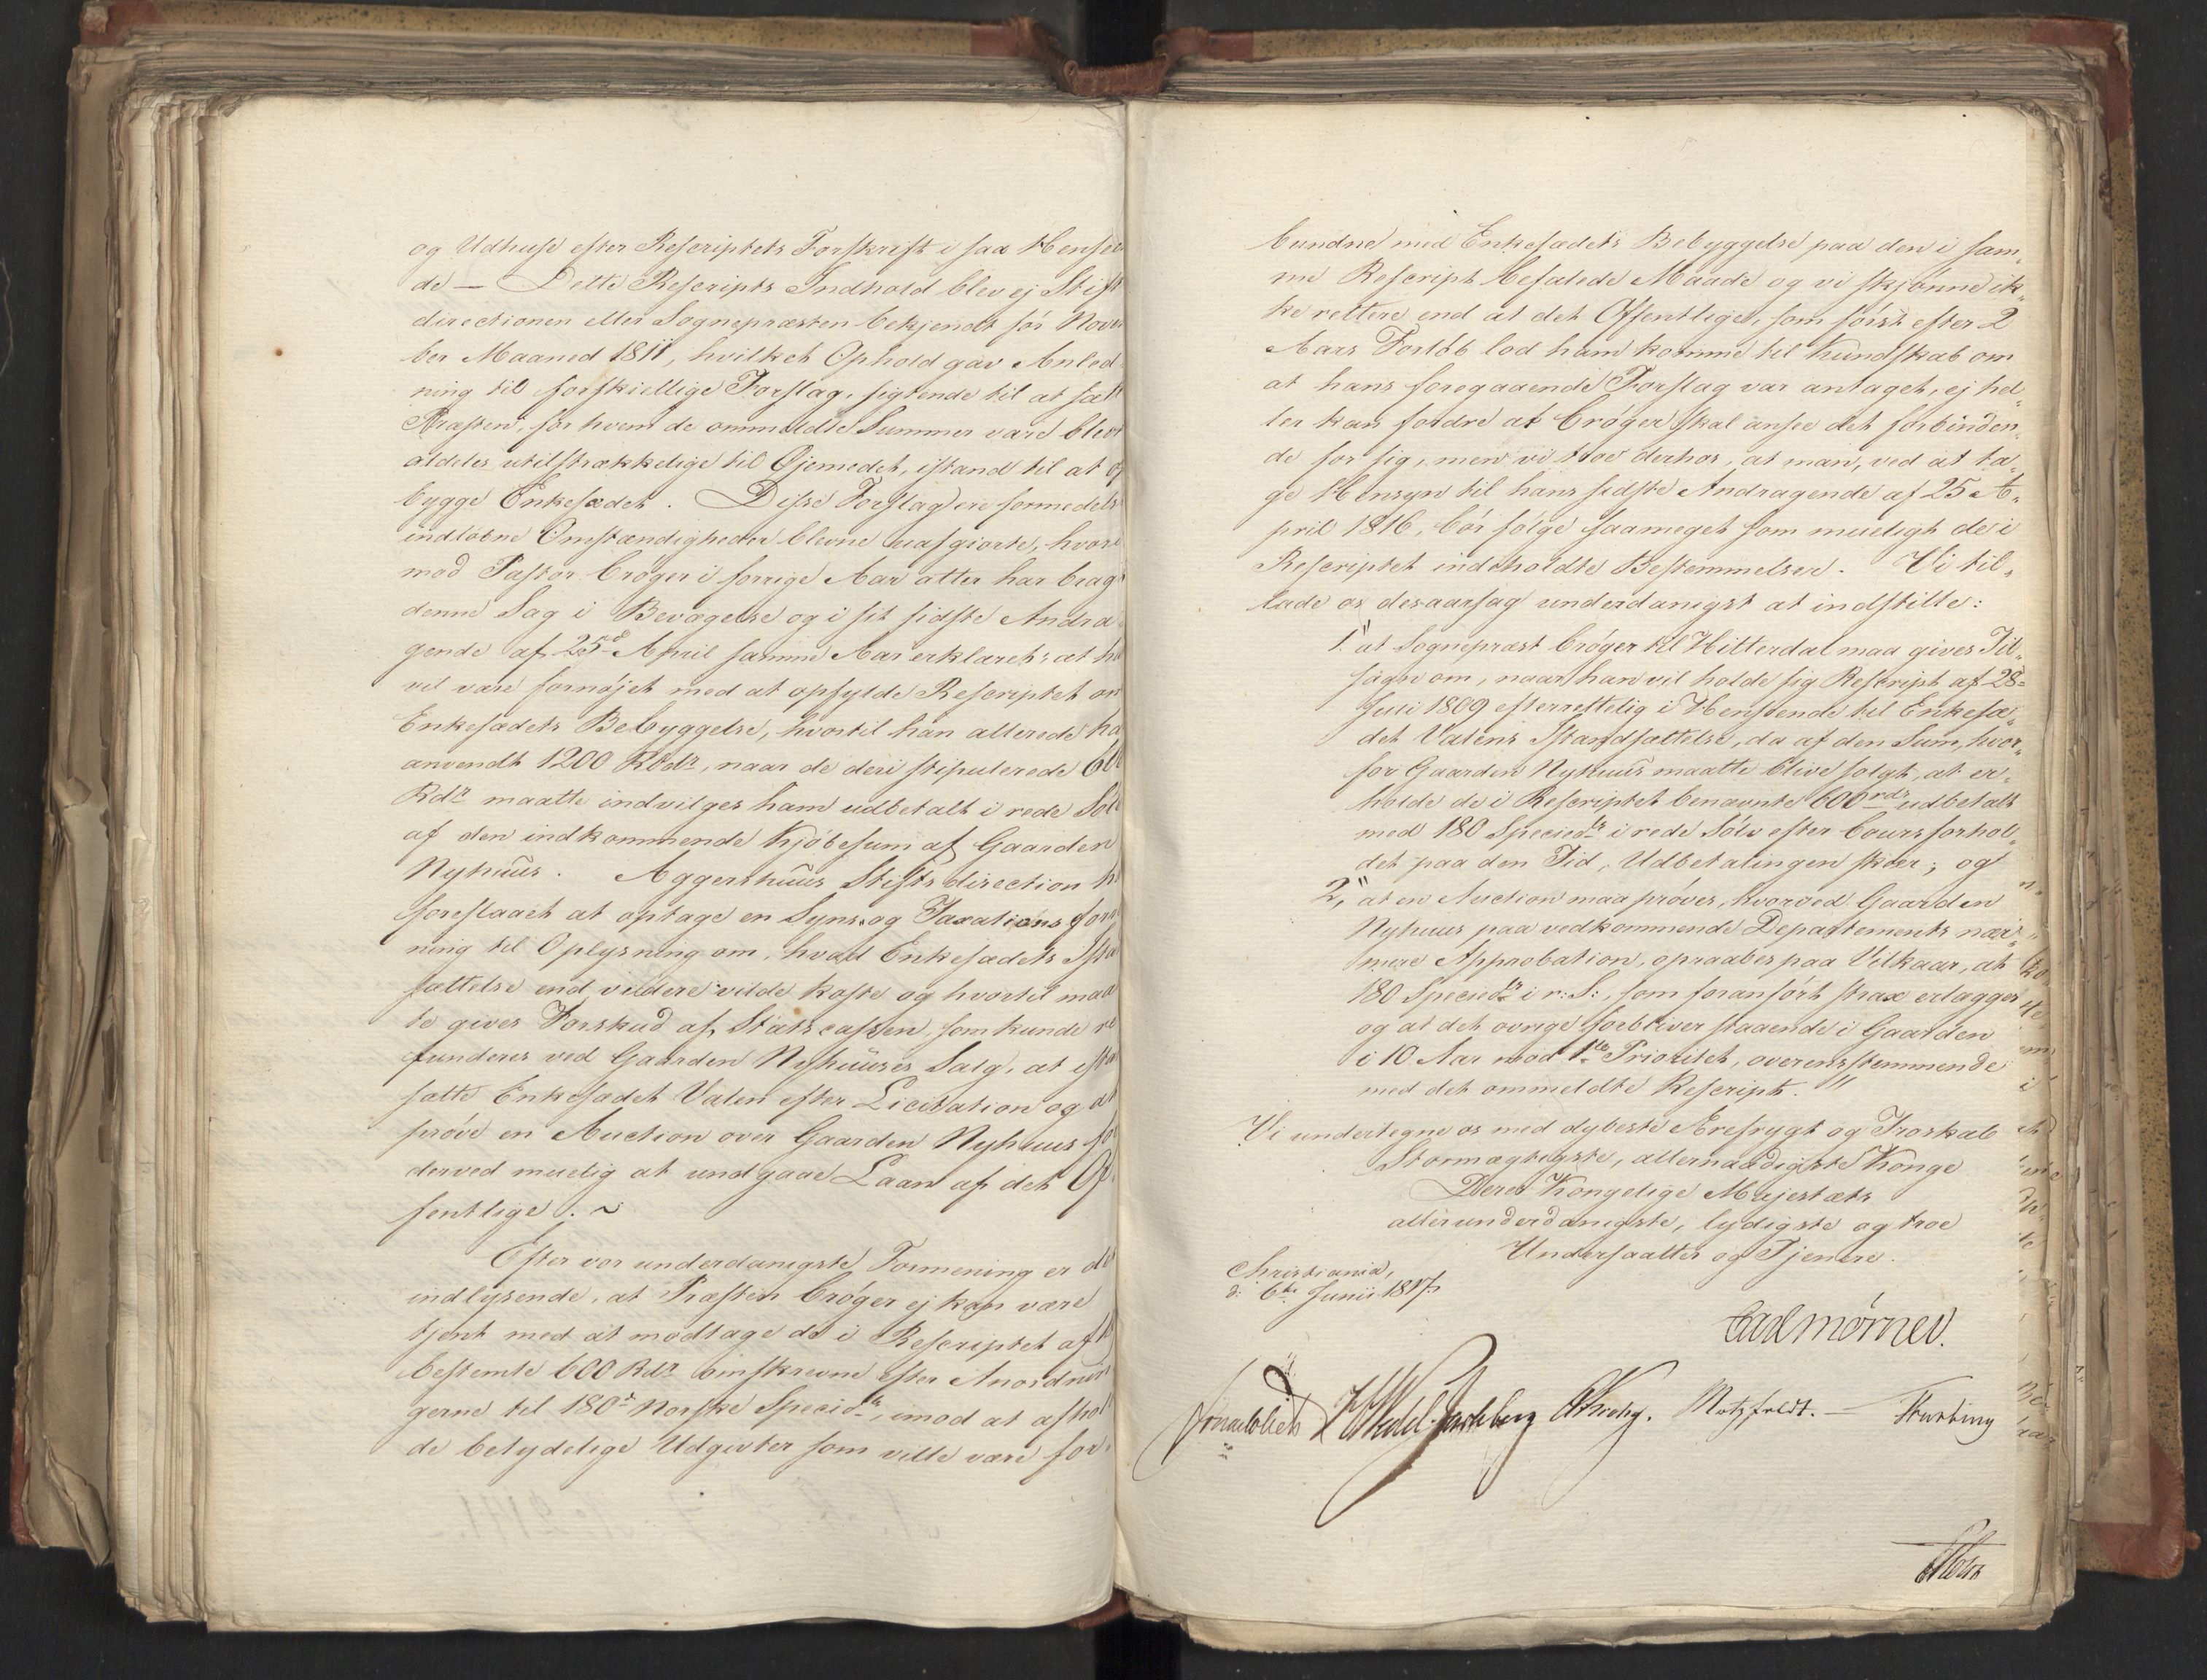 og Udhuse efter Rescriptets Forskrift i saa Henseen
de — Dette Rescripts Indhold blev ej Stift
directionen eller Sognepræsten bekjendt før Novem
ber Maaned 1811, hvilket Ophold gav Anled
ning til forskiellige Forslag, sigtende til at sætte
Præsten, for hvem de ommeldte Summer vare blevne
aldeles utilstrækkelige til Øjemedet, istand til at op
bygge Enkesædet. Disse Forslag ere formedelst
indløbne Omstændigheder blevne uafgiorte, hvori
mod Pastor Crøger i forrige Aar atter har bragt
denne Sag i Bevægelse og i sit sidste Andra
gende af 25d April samme Aar erklæret: at han
vil være fornøjet med at opfylde Rescriptet om
Enkesædets Bebyggelse, hvortil han allerede har
anvendt 1200 Rbdr, naar de deri stipulerede 600
Rdr maatte indvilges ham udbetalt i rede Sølv
af den indkommende Kjøbesum af Gaarden
Nyhuus. Aggershuus Stiftsdirection har
foreslaaet at optage en Syns og Taxations forret
ning til Oplysning om, hvad Enkesædets Istand
sættelse end videre vilde koste og hvortil maat
te gives Forskud af Statscassen, som kunde re
funderes ved Gaarden Nyhuuses Salg, at istand
sætte Enkesædet Valen efter Licitation og at
prøve en Auction over Gaarden Nyhuus for
derved muelig at undgaae Laan af det Of
fentlige. ~
Efter vor underdanigste Formening er det
indlysende, at Præsten Crøger ej kan være
tjent med at modtage de i Rescriptet af
bestemte 600 Rdr omskrevne efter Anordnin
gerne til 180 Norske Speciedr, imod at afhol
de betydelige Udgivter som ville være for,
bundne med Enkesædets Bebyggelse paa den i sam,
me Rescript befalede Maade og vi skjønne ik,
ke rettere end at det Offentlige, som først efter 2
Aars Forløb lod ham komme til Kundskab om
at hans foregaaende Forslag var antaget, ej hel,
ler kan fordre at Crøger skal ansee det forbinden,
de for sig, men vi troe derhos, at man, ved at ta,
ge Hensyn til hans sidste Andragende af 25 A,
pril 1816, bør følge saameget som mueligt de i
Rescriptet indeholdte Bestemmelser. Vi til,
lade os desaarsag underdanigst at indstille:
1" at Sognepræst Crøger til Hitterdal maa gives Til,
sagn om, naar han vil holde sig Rescript af 28
Juli 1809 efterrettelig i Henseende til Enkesæ,
det Valens Istandsættelse, da af den Sum, hvor,
for Gaarden Nyhuus maatte blive solgt, at er,
holde de i Rescriptet benævnte 600 rdr udbetalt
med 180 Speciedr i rede Sølv efter Coursforhol,
det paa den Tid, Udbetalingen skeer; og
2," at en Auction maa prøves, hvorved Gaarden
Nyhuus paa vedkommende Departements nær,
mere Approbation, opraabes paa Vilkaar, at
180 Speciedr i r: S:, som foranført strax erlægges
og at det øvrige forbliver staaende i Gaarden
i 10 Aar mod 1ste Prioritet, overensstemmende
med det ommeldte Rescript."
Vi undertegne os med dybeste Ærefrygt og Troskab
Stormægtigste, allernaadigste Konge
Deres Kongelige Majestæts
allerunderdanigste, lydigste og troe
Undersaatter og Tjenere.
Christiania,
d: 6te Junii 1817.
Carl Mørner.
Sommerhielm HWedel Jarlsberg CKrohg. Motzfeldt. — Thurbing